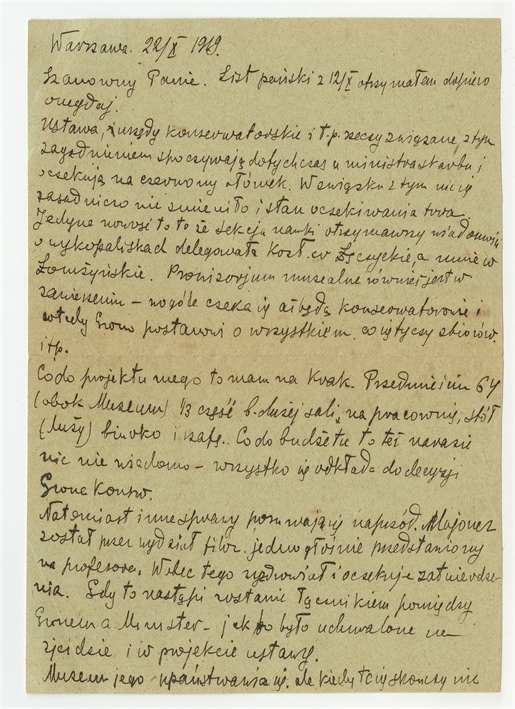 Warszawa. 22/X 1919.
Szanowny Panie. List pański z 12/X otrzymałem dopiero
onegdaj.
Ustawa, urzędy konserwatorskie i t.p. rzeczy związane z tym
zagadnieniem spoczywają dotychczas u ministra skarbu i
oczekują na czerwony ołówek. W związku z tym nic się
zasadniczo nie zmieniło i stan oczekiwania trwa.
Jedyne nowość to to że sekcja nauki otrzymawszy wiadomość
o wykopaliskach delegowała Kost. w Łęczyckie, a mnie w
Łomżyńskie. Prowizorjum muzealne również jest w
zawieszeniu – wogóle czeka się aż będą konserwatorowie i
wtedy Grono postanowi o wszystkiem co się tyczy zbiorów
i t.p.
Co do projektu mego to mam na Krak. Przedmieściu 64
(obok Museum) 1/3 część b. dużej sali, na pracownię, stół
(duży) biurko i szafę. Co do budżetu to też narazie
nic nie wiadomo – wszystko się odkłada do decyzji
Grona Konserw.
Natomiast inne sprawy posuwają się naprzód. Majewski
został przez wydział filoz. jednogłośnie przedstawiony
na profesora. Wobec tego wyzdrowiał i oczekuje zatwierdze-
nia. Gdy to nastąpi zostanie łącznikiem pomiędzy
Gronem a Minister – jak to było uchwalone na
zjeździe i w projekcie ustawy.
Museum jego upaństwawia się, ale kiedy to się skończy nic